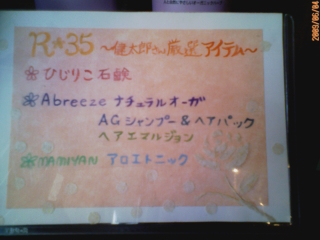 R★35
～健太郎さん厳選アイテム～
ひじりこ石鹸
Abreeze ナチュラルオーガ
AGシャンプー&ヘアパック
ヘアエマルジョン
YAMIYAN アロエトニック
2009/06/04